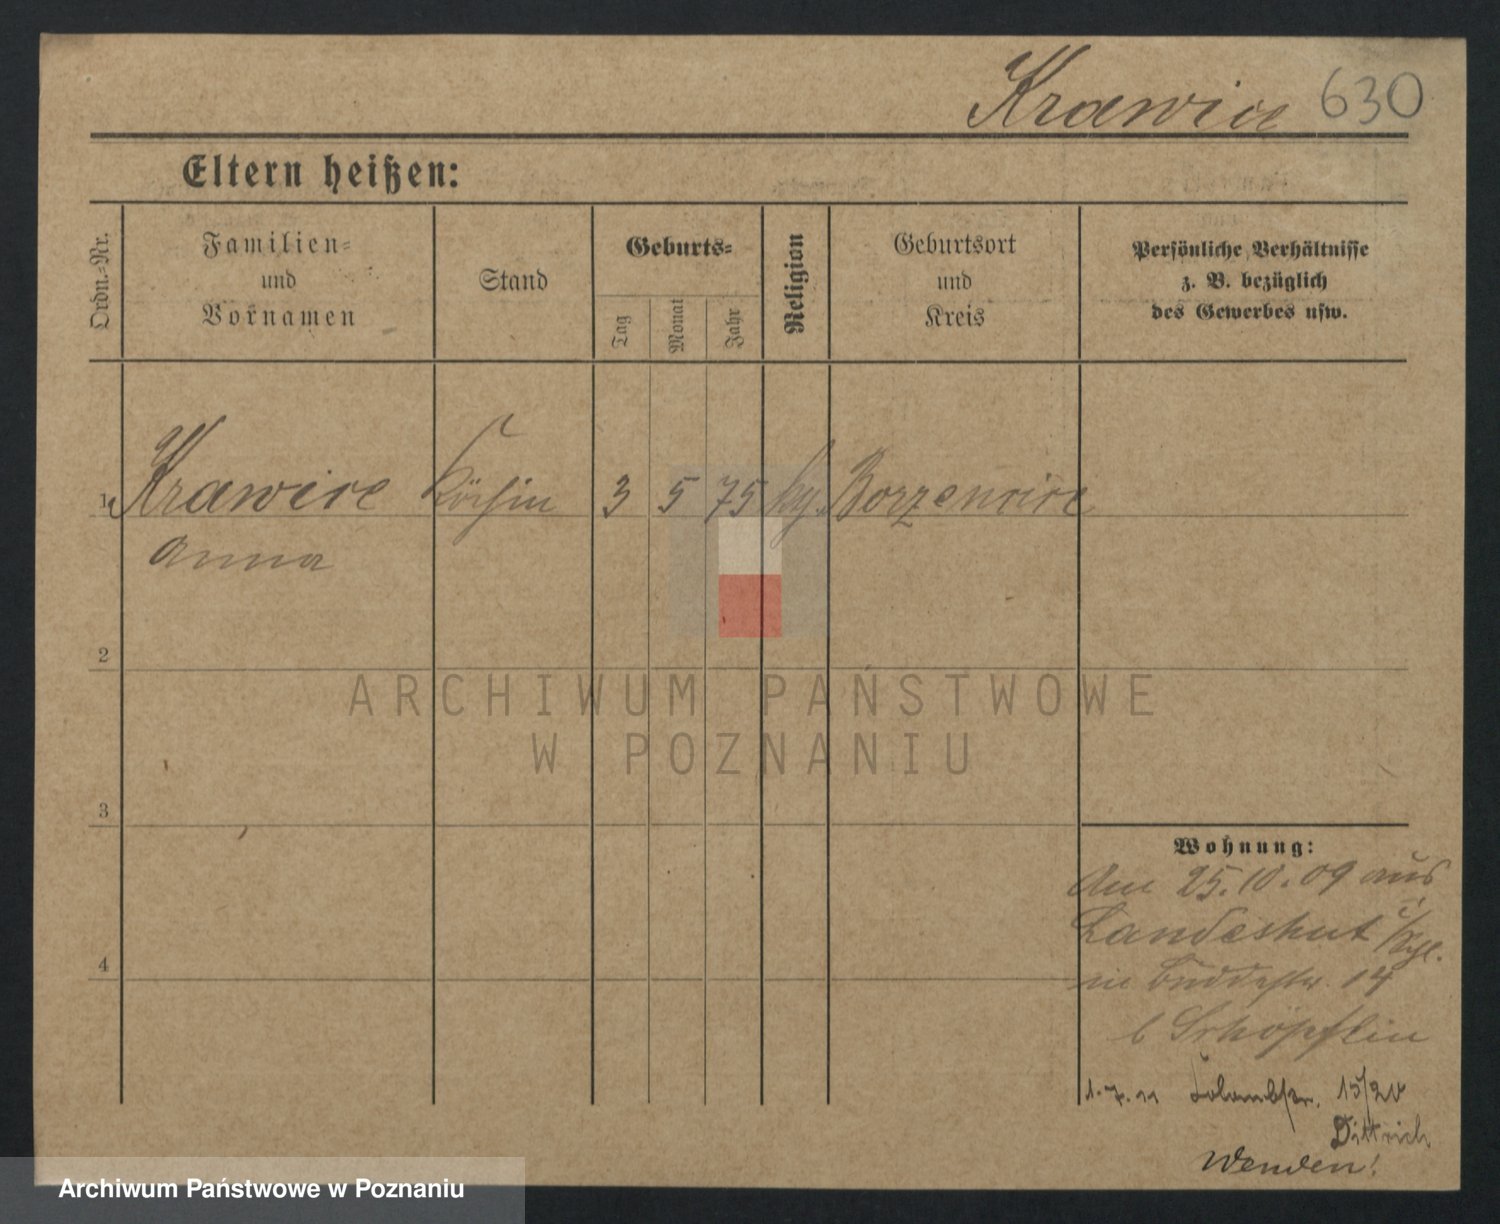 Krawiec 630
Eltern heißen:
Ordn.-Nr.
Familien-
und
Vornamen
Stand
Geburts-
Tag
Monat
Jahr
Religion
Geburtsort
und
Kreis
Persönliche Verhältnisse
z. B. bezüglich
des Gewerbes usw.
1 Krawiec Köchin 3 5 75 Borzencice
Anna
2
3
4
Wohnung:
Am 25.10.09 aus
Landeshut
in 14
b Schöpflin
1.7.11 15/20
Dittrich
Wenden!
ARCHIWUM PAŃSTWOWE
W POZNANIU
Archiwum Państwowe w Poznaniu